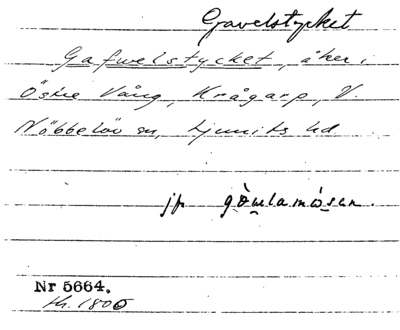 Gravelstycket
Gafwelstycket, åker i
Östre Vång, Krågarp, V.
Nöbbelöv sn, Ljunits hd
jfr gòmlamósen.
Nr 5664.
Kr. 1800